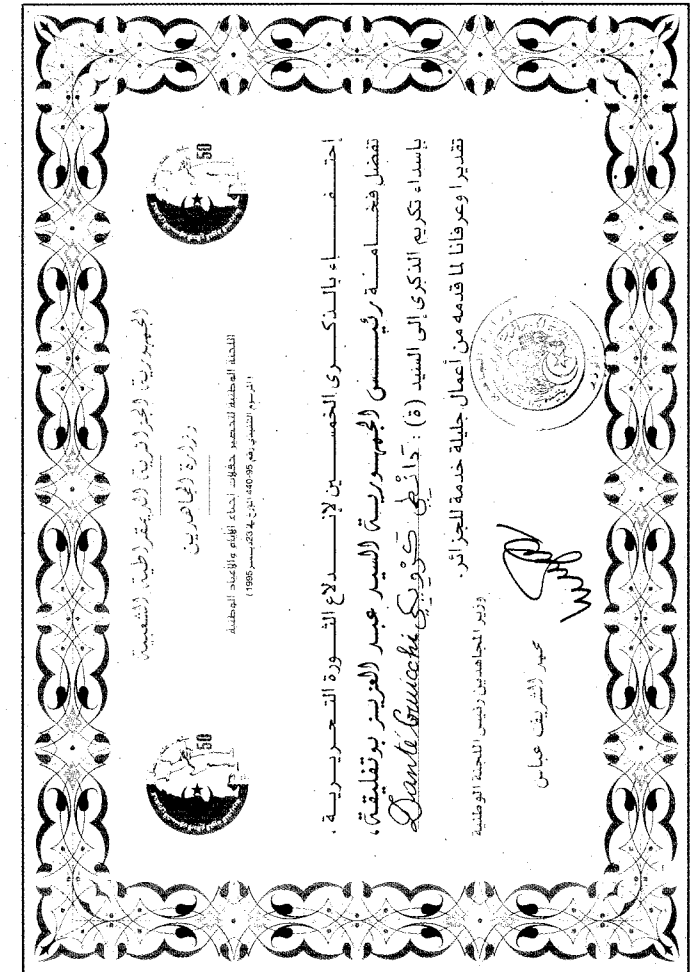 الجمهورية الجزائرية الديمقراطية الشعبية
وزارة المجاهدين
اللجنة الوطنية لتحضير حفلات إحياء الأيام والأعياد الوطنية
(المرسوم التنفيذي رقم 95-440 المؤرخ في 23 ديسمبر 1995)
50
50
إحتفاء بالذكرى الخمسين لإندلاع الثورة التحريرية.
تفضل فخامة رئيس الجمهورية السيد عبد العزيز بوتفليقة،
بإسداء تكريم الذكرى إلى السيد (ة) : Dante Gruicchi
تقديرا وعرفانا لما قدمه من أعمال جليلة خدمة للجزائر.
وزير المجاهدين رئيس اللجنة الوطنية
محمد الشريف عباس